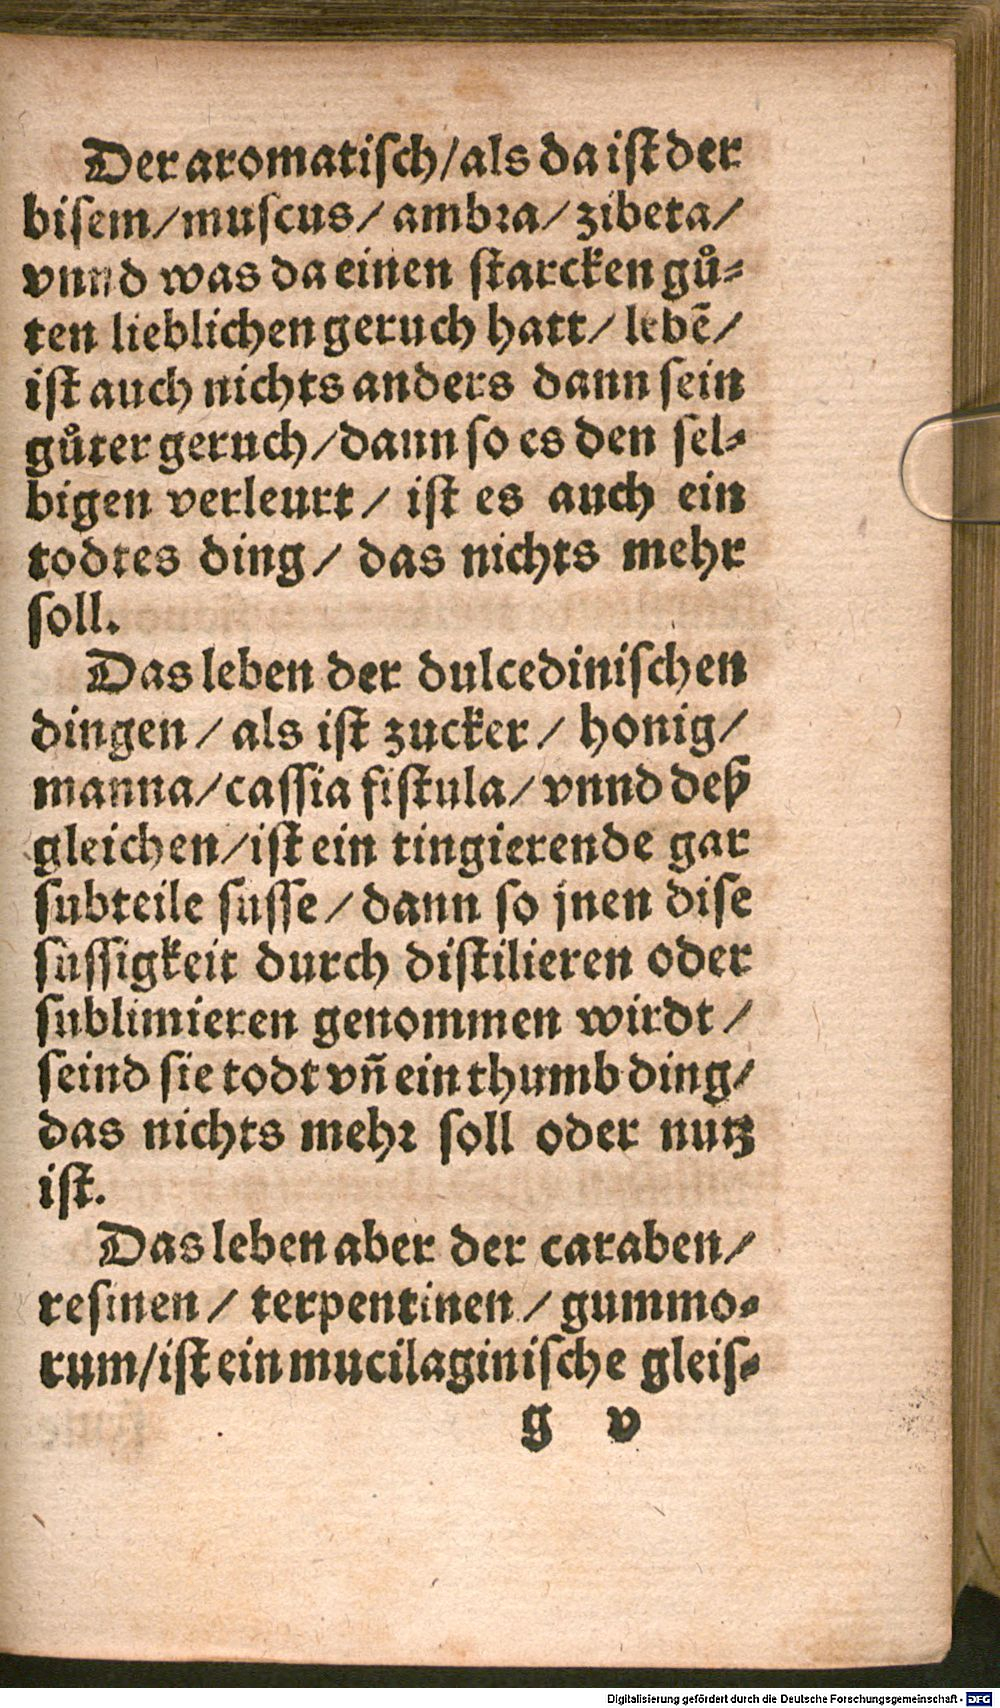 Der aromatisch/als da ist der
bisem/muscus/ ambra/zibeta/
vnnd was da einen starcken gů-
ten lieblichen geruch hatt/ lebẽ/
ist auch nichts anders dann sein
gůter geruch/dann so es den sel-
bigen verleurt/ ist es auch ein
todtes ding/ das nichts mehr
soll.
Das leben der dulcedinischen
dingen/ als ist zucker/ honig/
manna/cassia fistula/vnnd deß
gleichen/ist ein tingierende gar
subteile susse/dann so jnen dise
sussigkeit durch distilieren oder
sublimieren genommen wirdt/
seind sie todt vñ ein thumb ding/
das nichts mehr soll oder nutz
ist.
Das leben aber der caraben/
resinen/ terpentinen/gummo-
rum/ist ein mucilaginische gleis-
g v
Digitalisierung gefördert durch die Deutsche Forschungsgemeinschaft - DFG